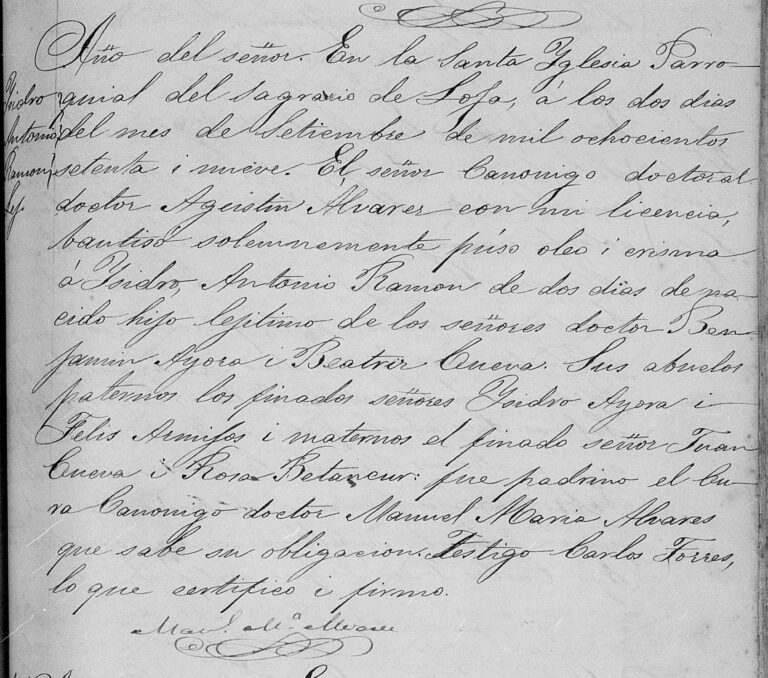 Año del señor. En la Santa Yglesia Parro-
quial del Sagrario de Loja, á los dos dias
del mes de Setiembre de mil ochocientos
setenta i nueve. El señor Canonigo doctoral
doctor Agustin Alvarez con mi licencia,
bautisó solemnemente púso oleo i crisma
á Ysidro, Antonio Ramon de dos dias de na-
cido hijo lejitimo de los señores doctor Ben-
jamin Ayora i Beatriz Cueva. Sus abuelos
paternos los finados señores Ysidro Ayora i
Felis Armijos i maternos el finado señor Juan
Cueva i Rosa Betancur: fue padrino el Cu-
ra Canonigo doctor Manuel Maria Alvares
que sabe su obligacion. Testigo Carlos Torres,
lo que certifico i firmo.
Manl. Ma.
Ysidro
Antonio
Ramon
Lej.